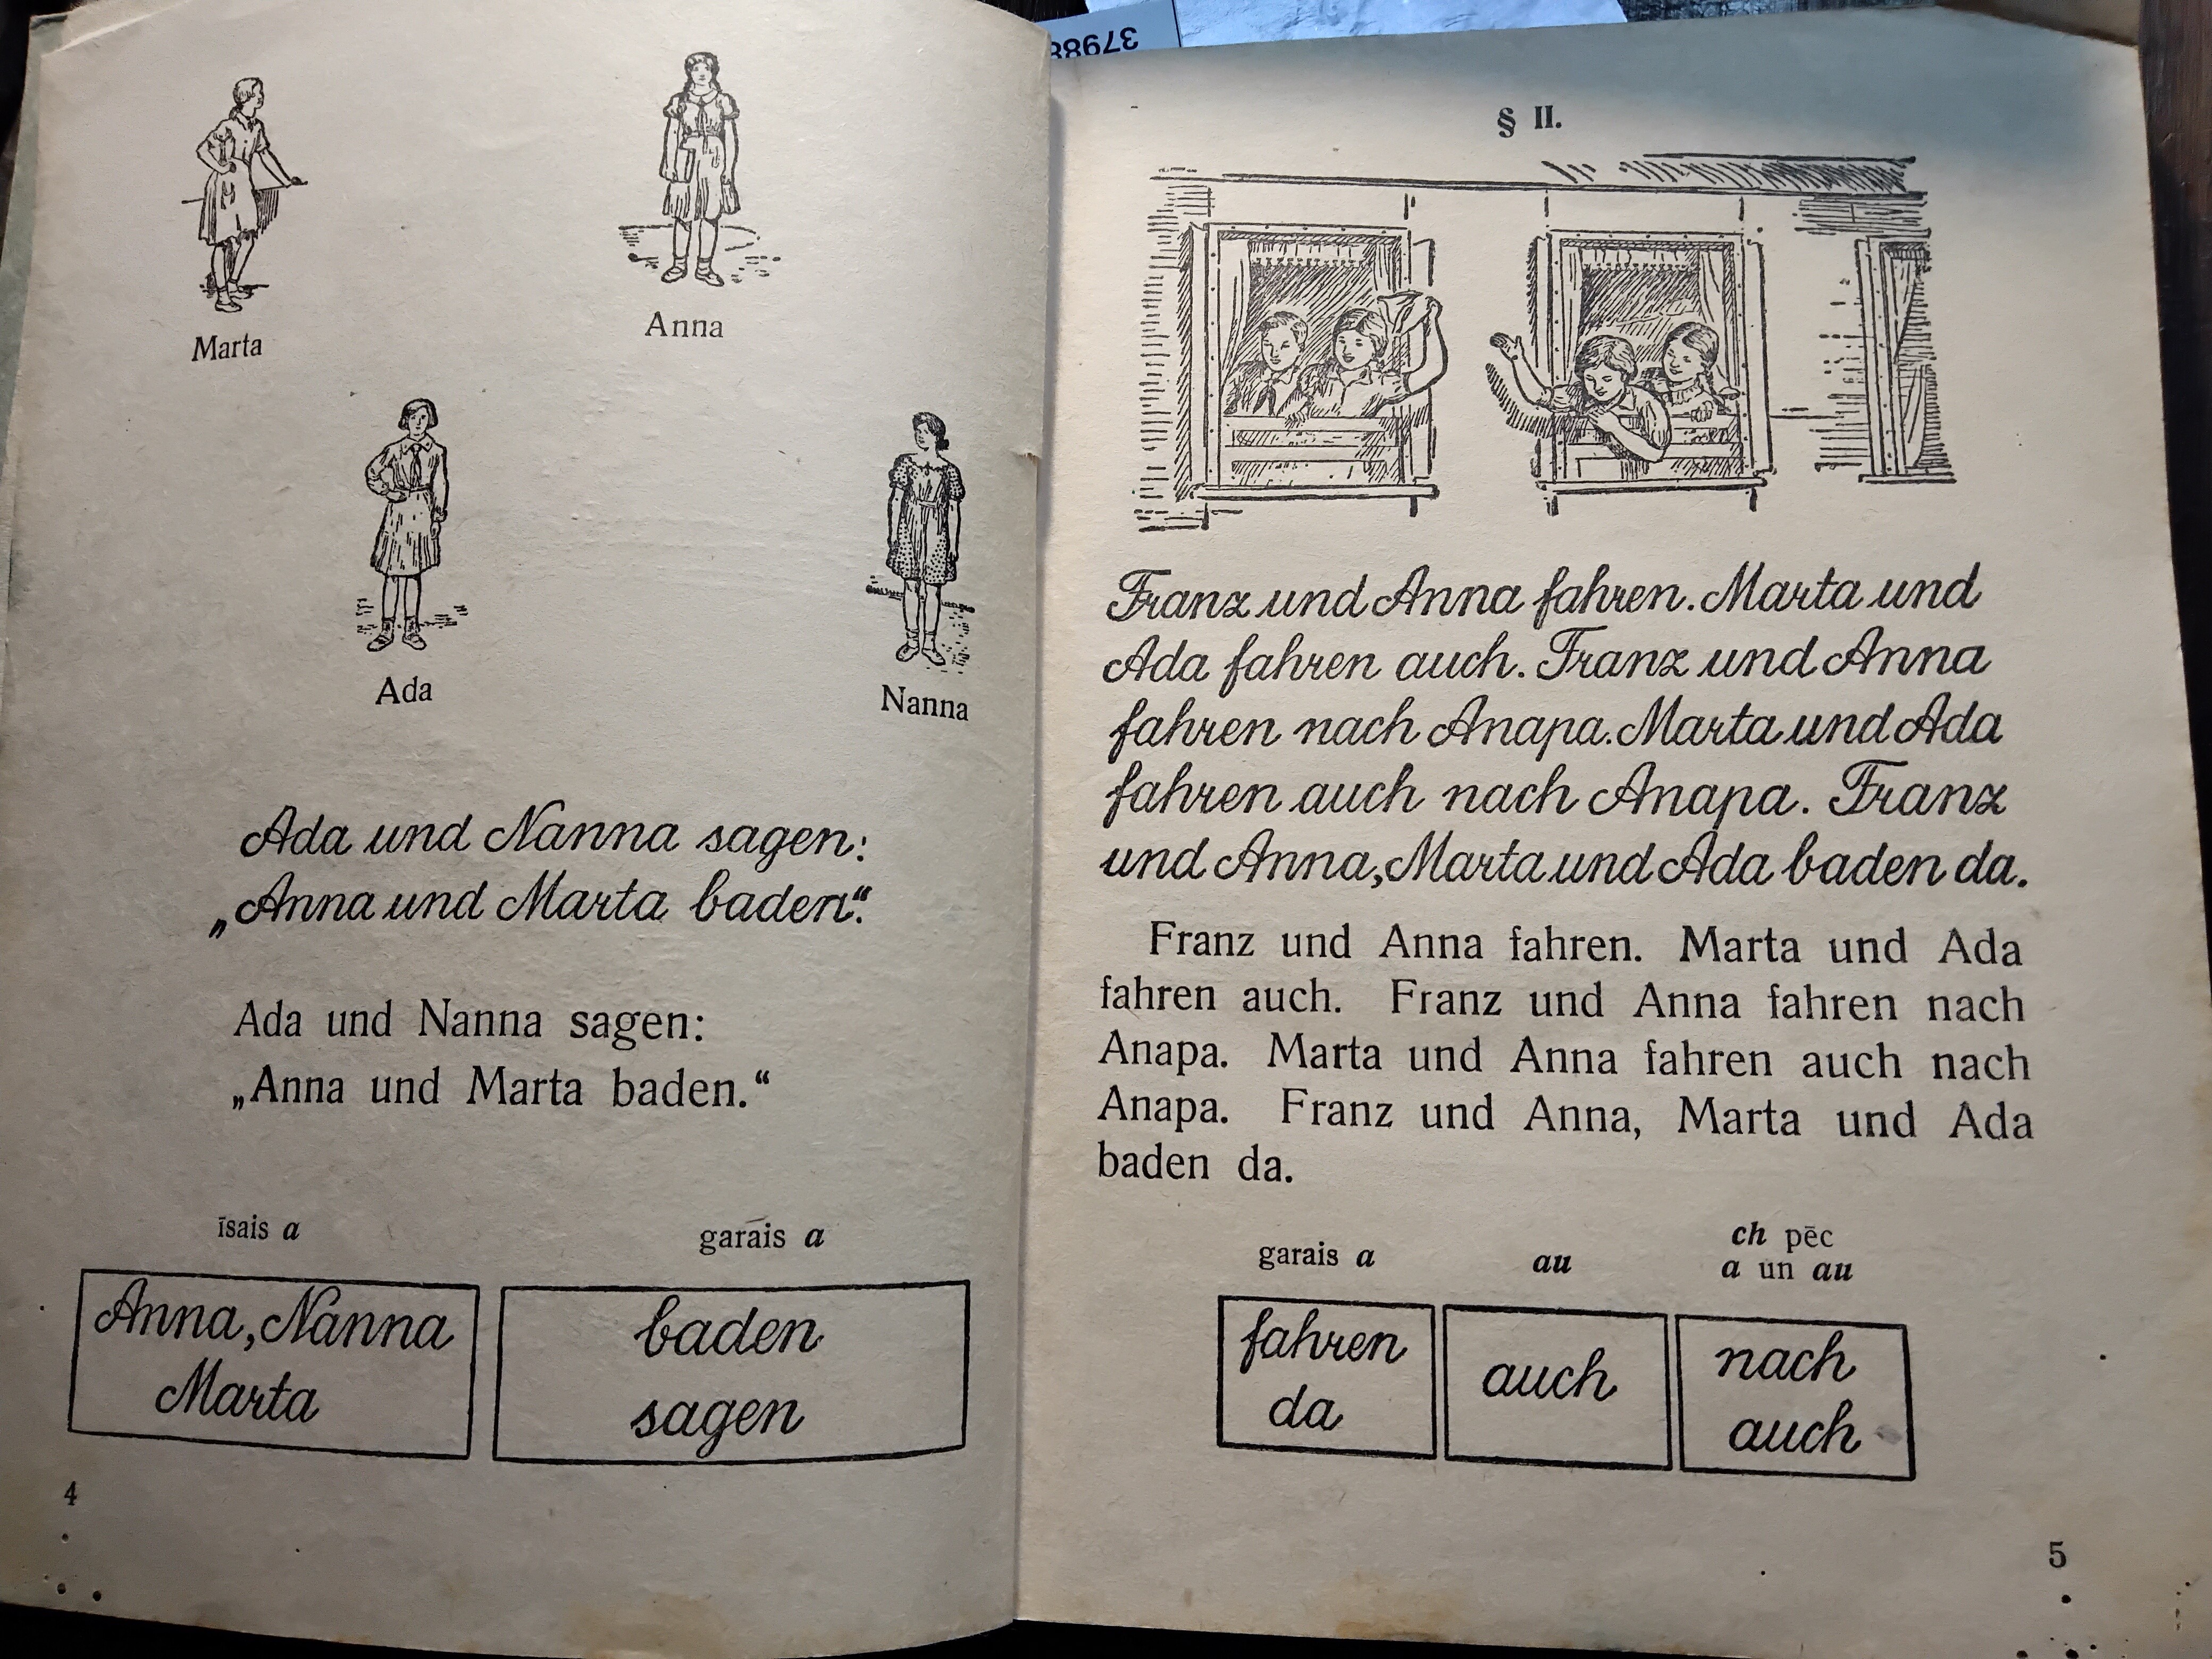 37988
Marta
Anna
Ada
Nanna
Ada und Nanna sagen:
„Anna und Marta baden“.
Ada und Nanna sagen:
„Anna und Marta baden.“
īsais a
garāis a
Anna, Nanna
Marta
baden
sagen
4
§ II.
Franz und Anna fahren. Marta und
Ada fahren auch. Franz und Anna
fahren nach Anapa. Marta und Ada
fahren auch nach Anapa. Franz
und Anna, Marta und Ada baden da.
Franz und Anna fahren. Marta und Ada
fahren auch. Franz und Anna fahren nach
Anapa. Marta und Anna fahren auch nach
Anapa. Franz und Anna, Marta und Ada
baden da.
garais a
au
ch pēc
a un au
fahren
da
auch
nach
auch
5